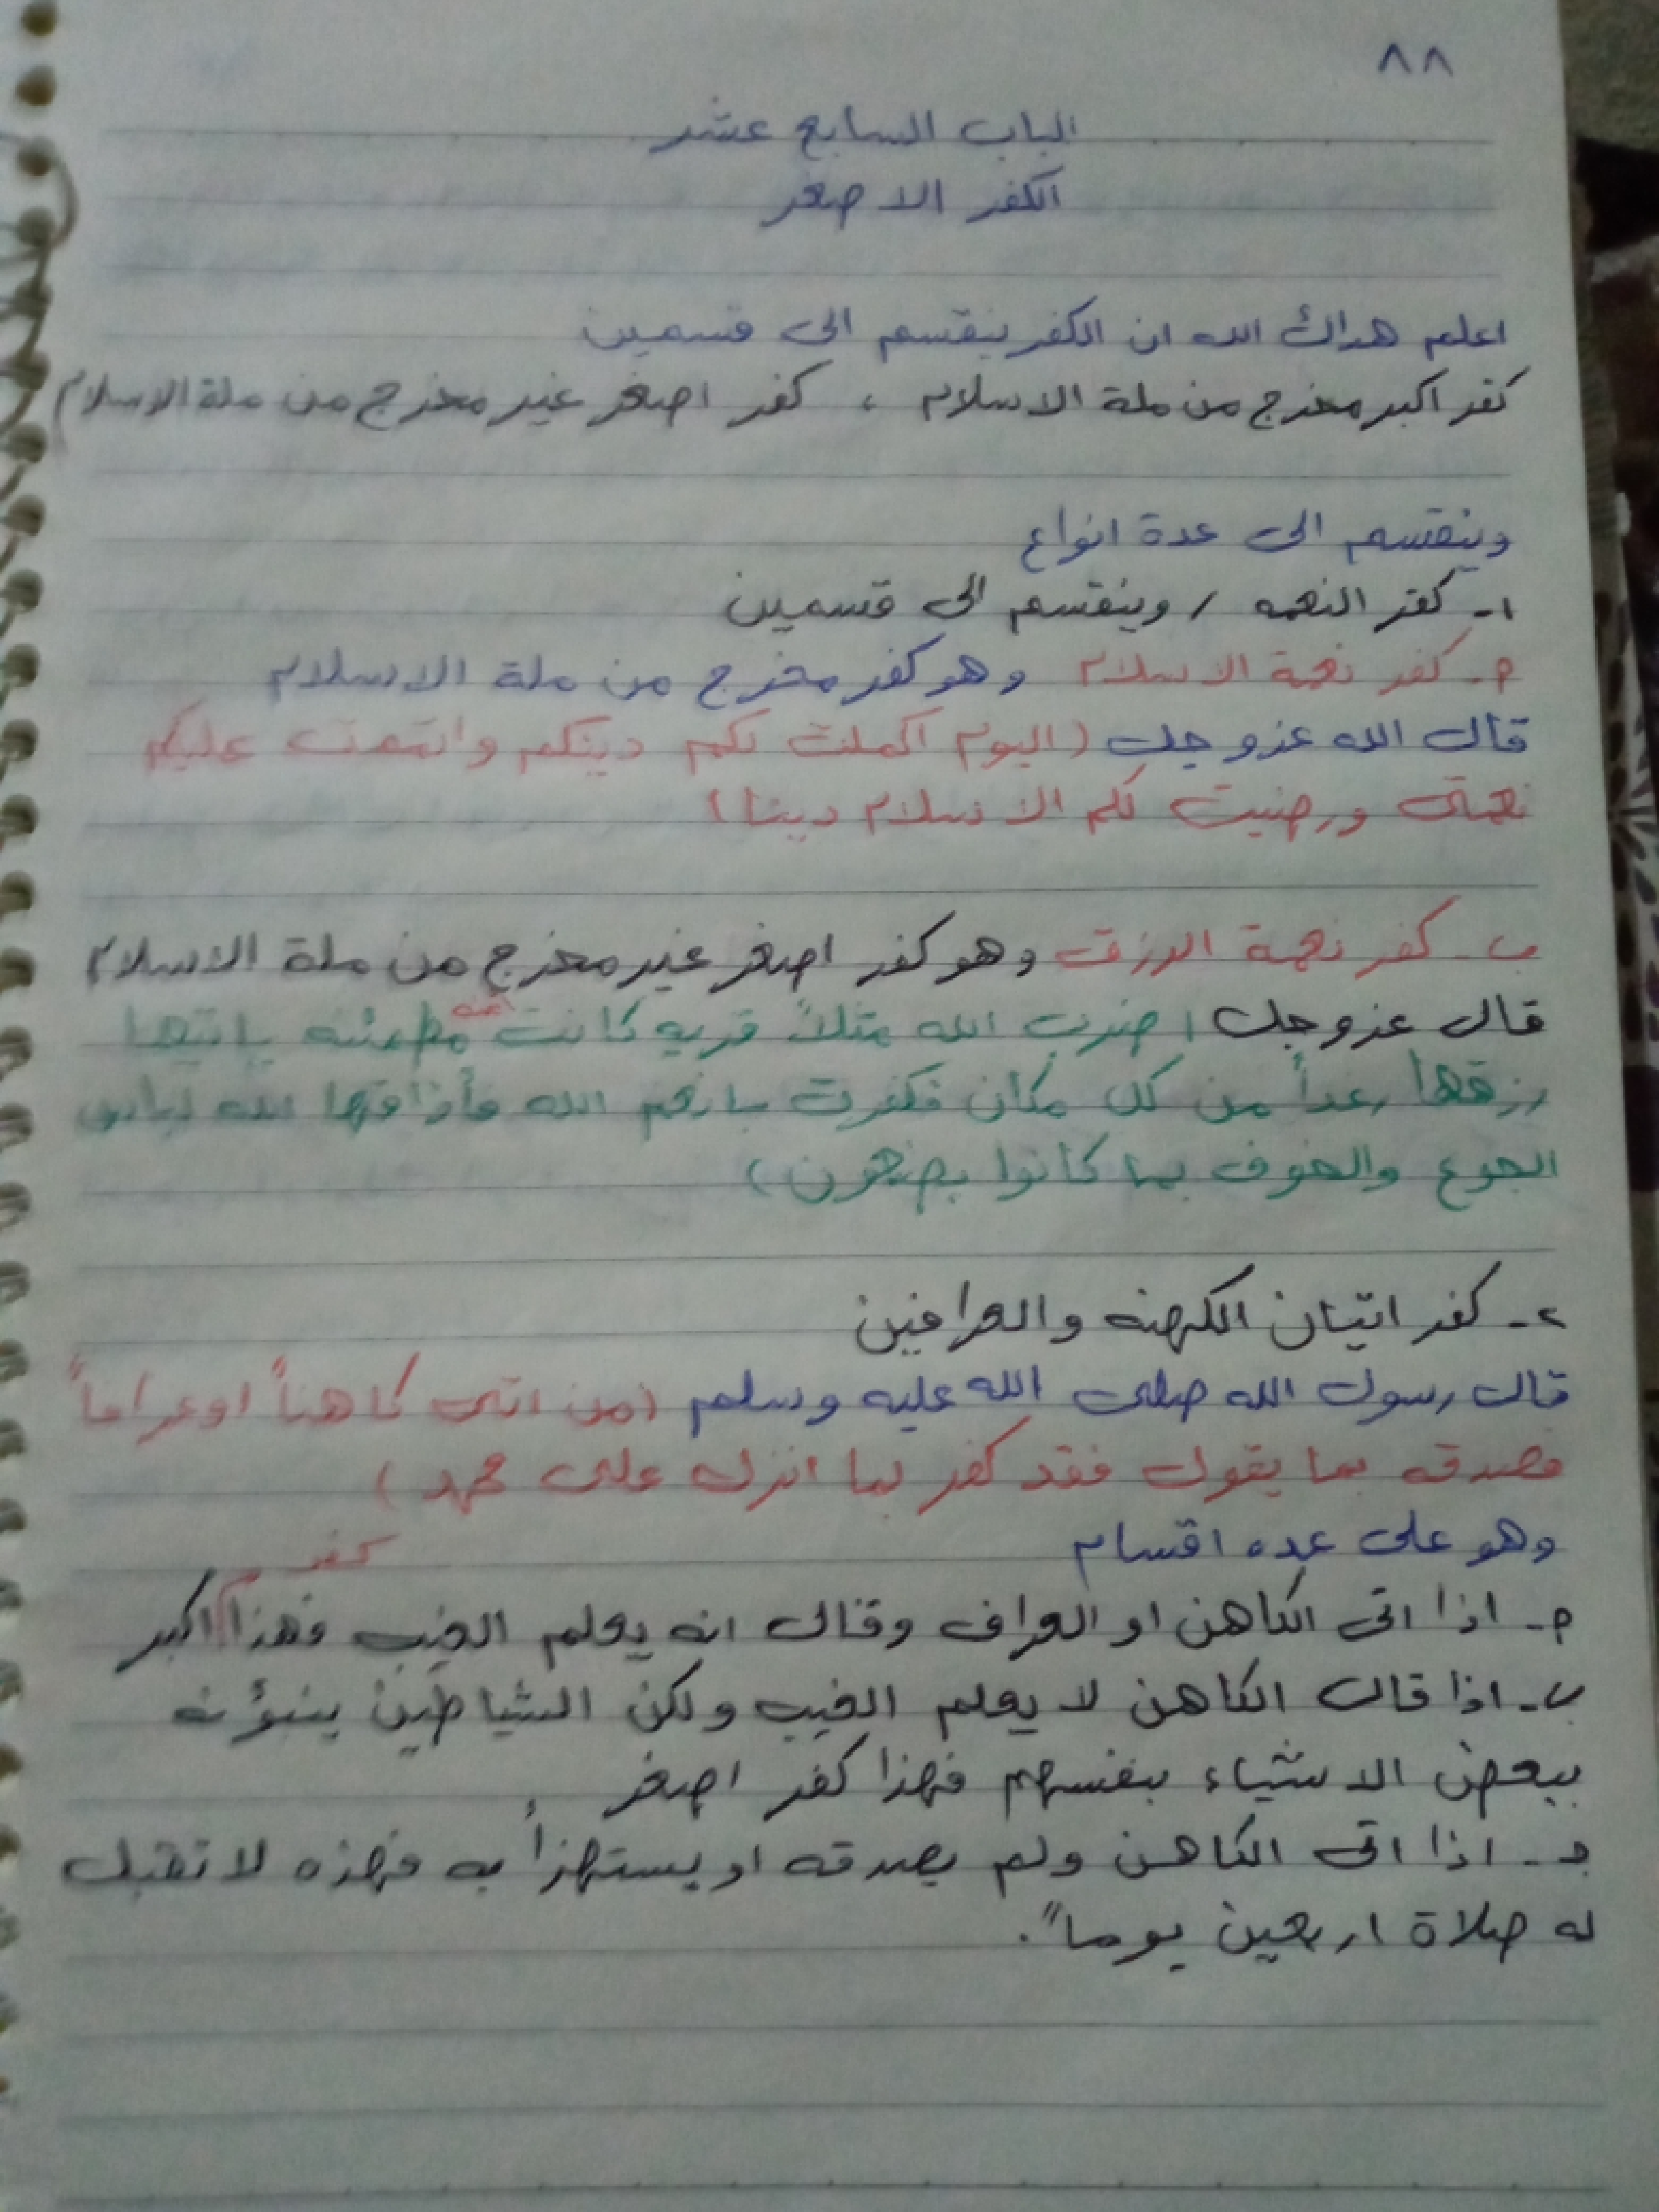 ٨٨
الباب السابع عشر
الكفر الاصغر
اعلم هداك الله ان الكفر ينقسم الى قسمين
كفر اكبر مخرج من ملة الاسلام ، كفر اصغر غير مخرج من ملة الاسلام
وينقسم الى عدة انواع
١- كفر النعمه / وينقسم الى قسمين
م- كفر نعمة الاسلام وهو كفر مخرج من ملة الاسلام
قال الله عزوجل (اليوم اكملت لكم دينكم واتممت عليكم
نعمتى ورضيت لكم الاسلام دينا)
ب- كفر نعمة الرزق وهو كفر اصغر غير مخرج من ملة الاسلام
قال عزوجل (ضرب الله مثلاً قريه كانت آمنه مطمئنه ياتيها
رزقها رغداً من كل مكان فكفرت بانعم الله فأذاقها الله لباس
الجوع والخوف بما كانوا يصنعون)
٢- كفر اتيان الكهنه والعرافين
قال رسول الله صلى الله عليه وسلم (من اتى كاهناً او عرافاً
فصدقه بما يقول فقد كفر بما انزل على محمد)
وهو على عده اقسام
م- اذا اتى الكاهن او العراف وقال انه يعلم الغيب فهذا كفر اكبر
ب- اذا قال الكاهن لا يعلم الغيب ولكن الشياطين ينبؤنه
ببعض الاشياء بنفسهم فهذا كفر اصغر .
جـ- اذا اتى الكاهن ولم يصدقه او يستهزأ به فهذه لا تقبل
له صلاة اربعين يوماً.